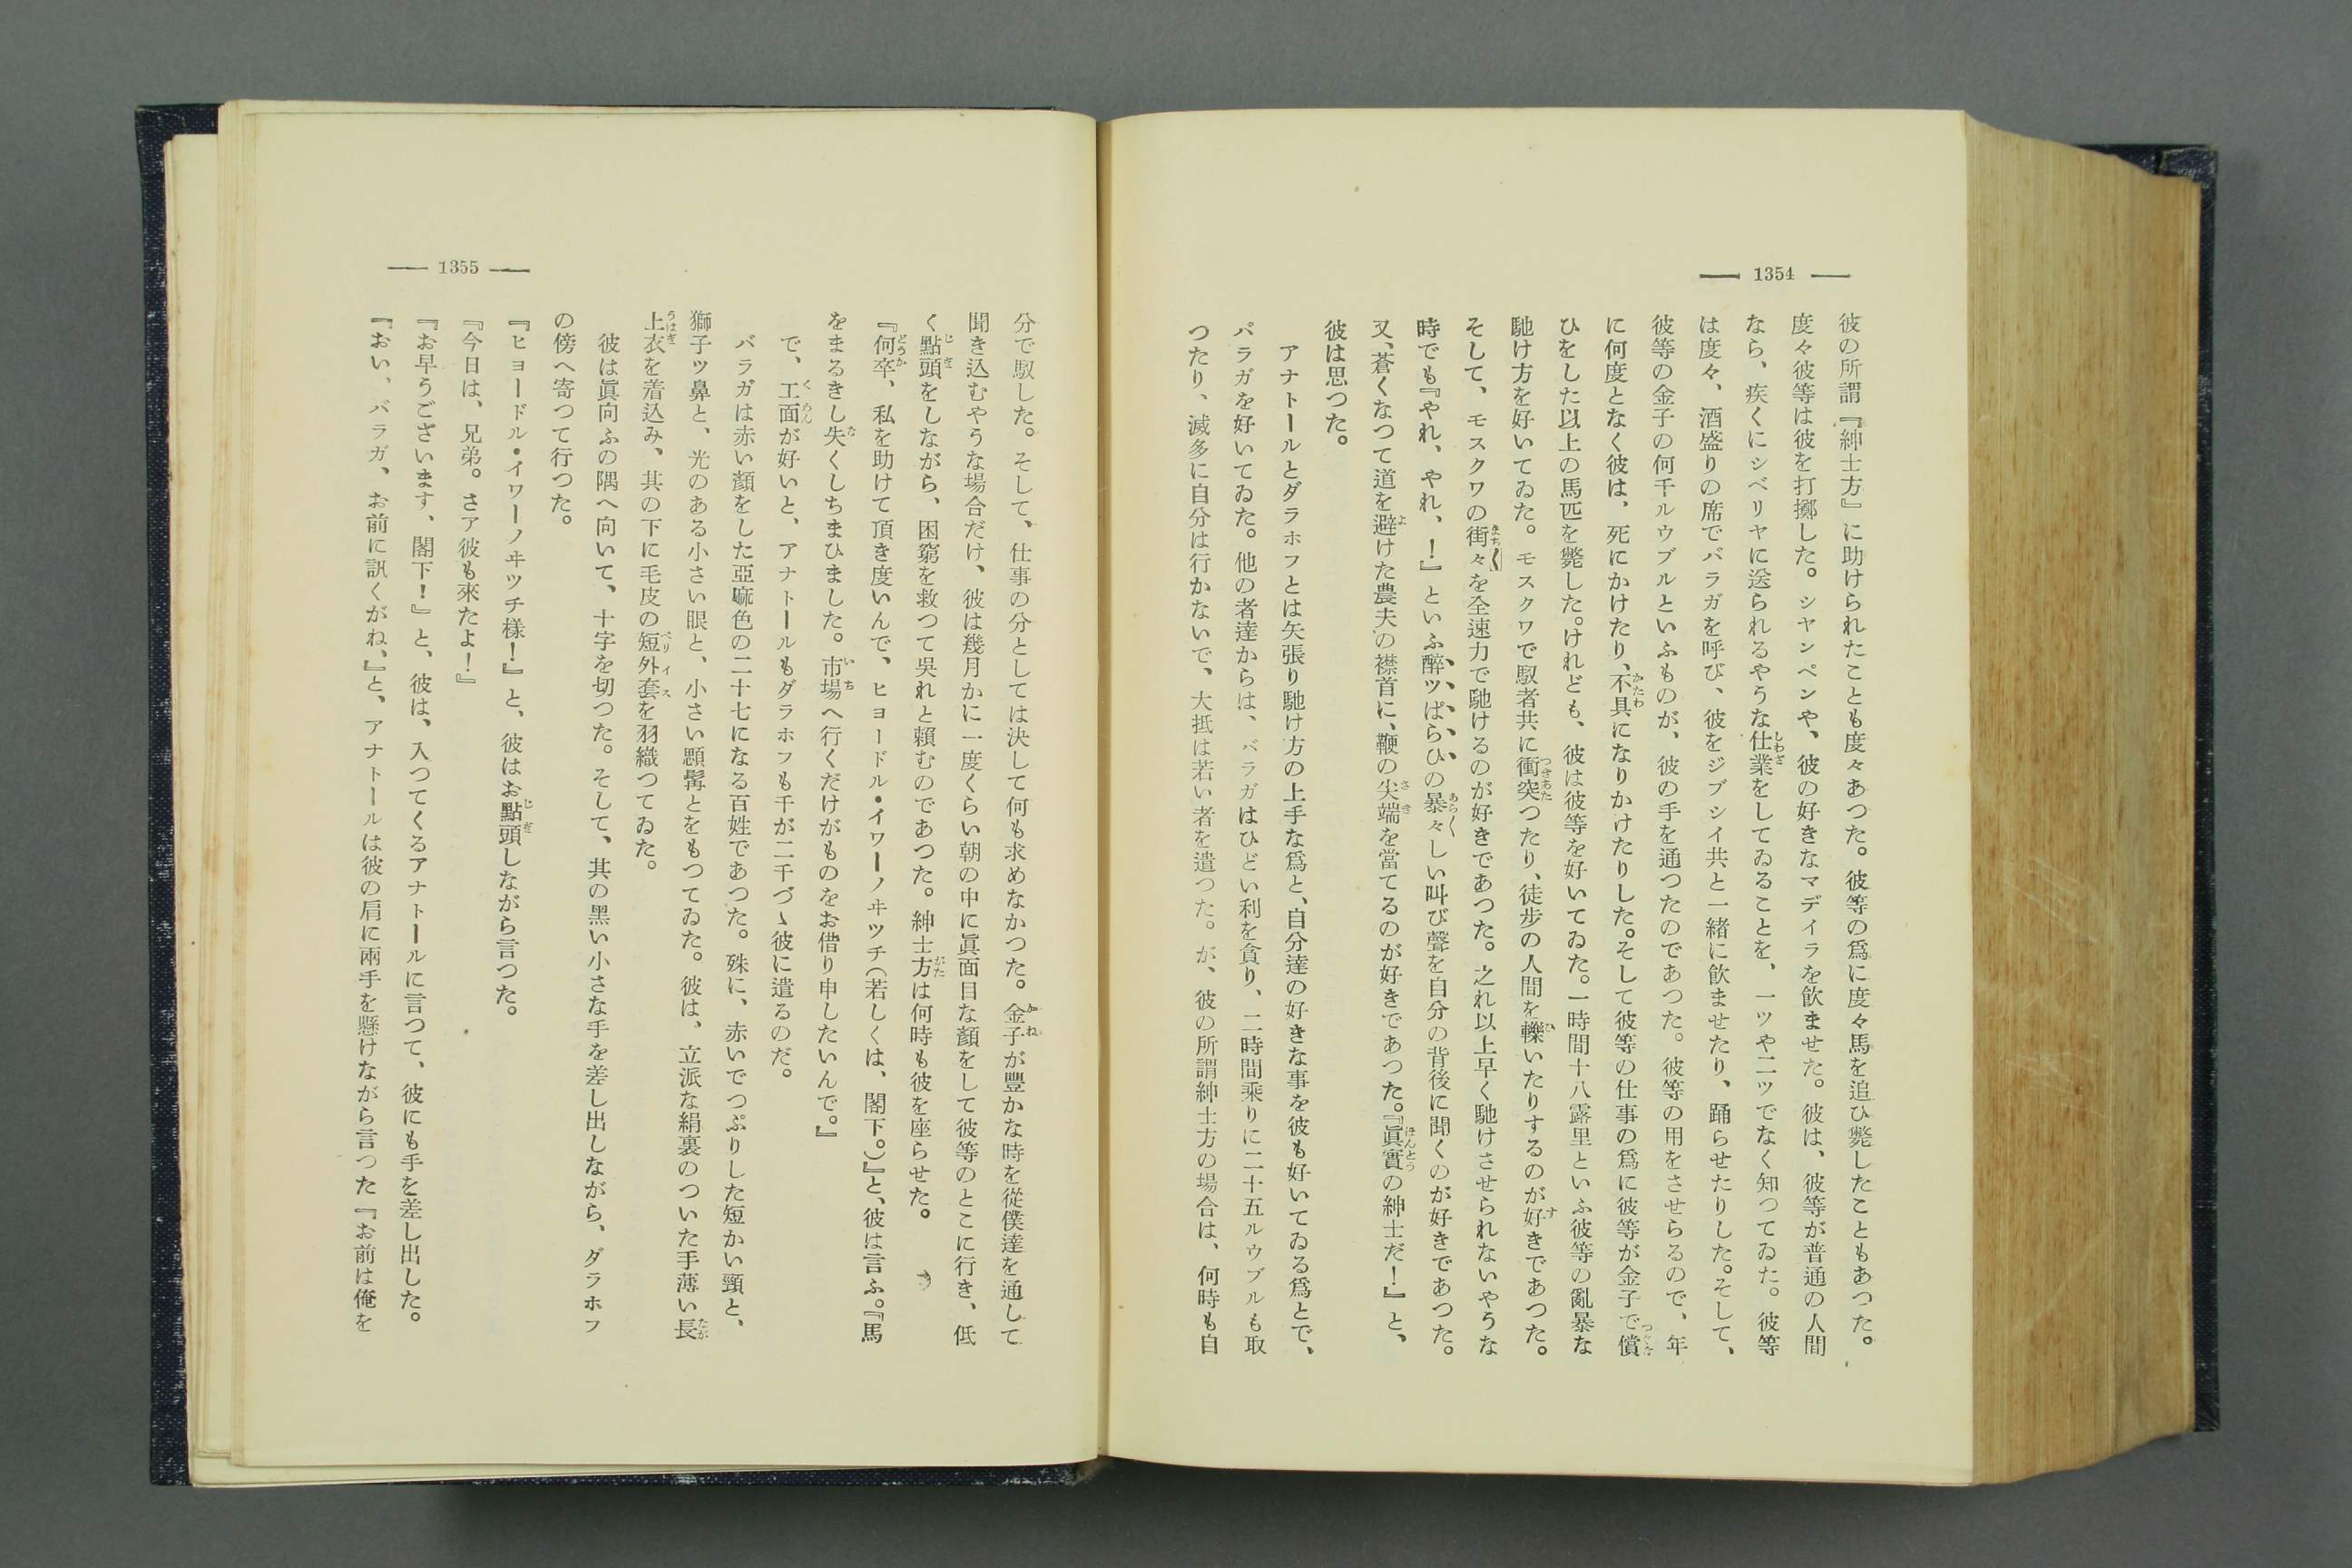 — 1354 —
彼の所謂『紳士方』に助けられたことも度々あつた。彼等の爲に度々馬を追ひ斃したこともあつた。
度々彼等は彼を打擲した。シヤンペンや、彼の好きなマデイラを飮ませた。彼は、彼等が普通の人間
なら、疾くにシベリヤに送られるやうな仕業をしてゐることを、一ツや二ツでなく知つてゐた。彼等
は度々、酒盛りの席でバラガを呼び、彼をジブシイ共と一緒に飮ませたり、踊らせたりした。そして、
彼等の金子の何千ルウブルといふものが、彼の手を通つたのであつた。彼等の用をさせらるので、年
に何度となく彼は、死にかけたり、不具になりかけたりした。そして彼等の仕事の爲に彼等が金子で償
ひをした以上の馬匹を斃した。けれども、彼は彼等を好いてゐた。一時間十八露里といふ彼等の亂暴な
馳け方を好いてゐた。モスクワで馭者共に衝突つたり、徒歩の人間を轢いたりするのが好きであつた。
そして、モスクワの街々を全速力で馳けるのが好きであつた。之れ以上早く馳けさせられないやうな
時でも『やれ、やれ、！』といふ醉ツぱらひの暴々しい叫び聲を自分の背後に聞くのが好きであつた。
又、蒼くなつて道を避けた農夫の襟首に、鞭の尖端を當てるのが好きであつた。『眞實の紳士だ！』と、
彼は思つた。
アナトールとダラホフとは矢張り馳け方の上手な爲と、自分達の好きな事を彼も好いてゐる爲とで、
バラガを好いてゐた。他の者達からは、バラガはひどい利を貪り、二時間乘りに二十五ルウブルも取
つたり、滅多に自分は行かないで、大抵は若い者を遣つた。が、彼の所謂紳士方の場合は、何時も自
— 1355 —
分で馭した。そして、仕事の分としては決して何も求めなかつた。金子が豐かな時を從僕達を通して
聞き込むやうな場合だけ、彼は幾月かに一度くらい朝の中に眞面目な顏をして彼等のとこに行き、低
く點頭をしながら、困窮を救つて呉れと頼むのであつた。紳士方は何時も彼を座らせた。
『何卒、私を助けて頂き度いんで、ヒョードル・イワーノヰツチ（若しくは、閣下。）』と、彼は言ふ。『馬
をまるきし失くしちまひました。市場へ行くだけがものをお借り申したいんで。』
で、工面が好いと、アナトールもダラホフも千が二千づゝ彼に遣るのだ。
バラガは赤い顏をした亞麻色の二十七になる百姓であつた。殊に、赤いでつぷりした短かい頸と、
獅子ツ鼻と、光のある小さい眼と、小さい顋髯とをもつてゐた。彼は、立派な絹裏のついた手薄い長
上衣を着込み、其の下に毛皮の短外套を羽織つてゐた。
彼は眞向ふの隅へ向いて、十字を切つた。そして、其の黑い小さな手を差し出しながら、ダラホフ
の傍へ寄つて行つた。
『ヒョードル・イワーノヰツチ樣！』と、彼はお點頭しながら言つた。
『今日は、兄弟。さア彼も來たよ！』
『お早うございます、閣下！』と、彼は、入つてくるアナトールに言つて、彼にも手を差し出した。
『おい、バラガ、お前に訊くがね、』と、アナトールは彼の肩に兩手を懸けながら言つた『お前は俺を